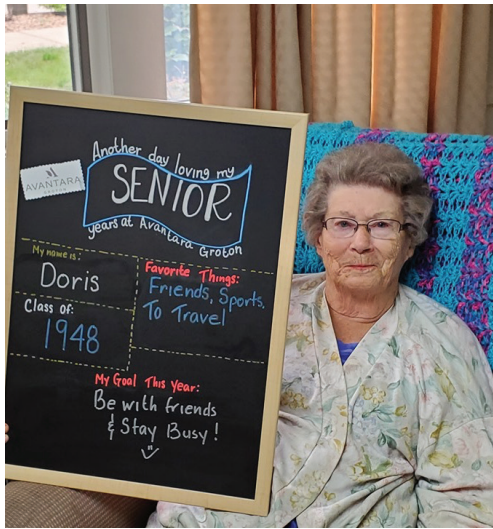 Another day loving my
SENIOR
years at Avantara Groton
AVANTARA
GROTON
My name is:
Doris
Class of:
1948
Favorite Things:
Friends, Sports.
To Travel
My Goal This Year:
Be with friends
& Stay Busy!